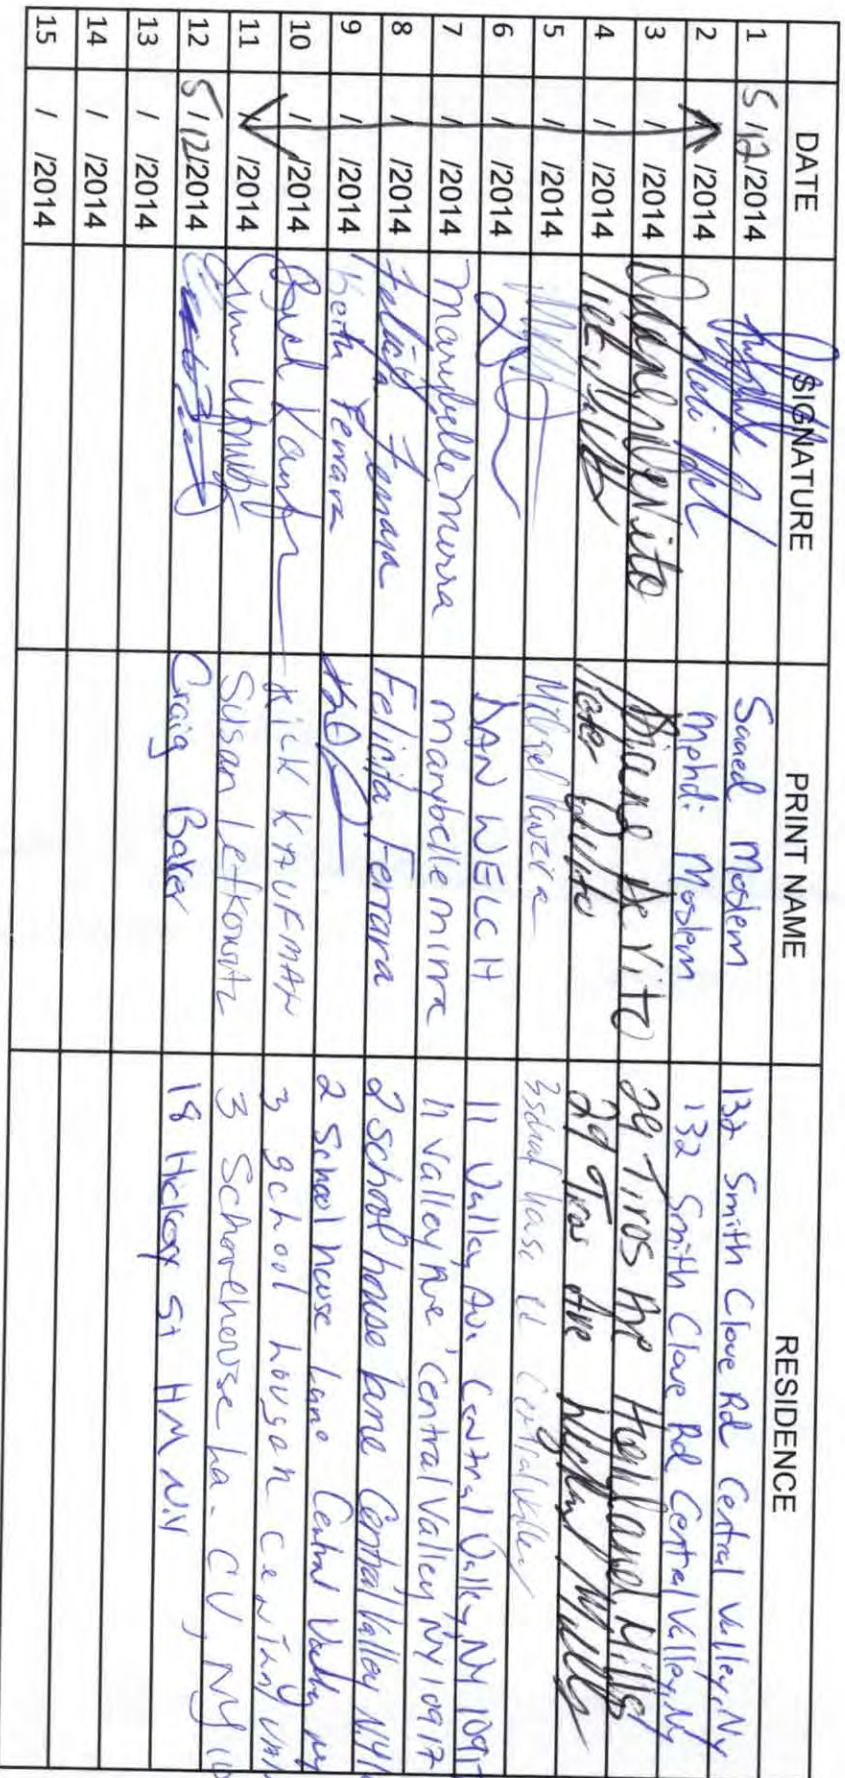 DATE SIGNATURE PRINT NAME RESIDENCE
1 5/12/2014 Saaed Moslem 132 Smith Clove Rd Central Valley, NY
2 / /2014 Mehdi Moslem 132 Smith Clove Rd Central Valley, NY
3 / /2014 Diane DeVito Diane DeVito 29 Tiros Ave Highland Mills
4 / /2014 Peter DeVito 29 Tiros Ave Highland Mills
5 / /2014 Michael Central Valley
6 / /2014 DAN WELCH 11 Valley Av. Central Valley, NY 1091
7 / /2014 Marybelle Mirra marybelle mirra 11 Valley Ave Central Valley NY 10917
8 / /2014 Felicita Ferrara Felicita Ferrara 2 School house Lane Central Valley NY
9 / /2014 Keith Ferrara 2 School house Lane Central Valley NY
10 / /2014 Rick Kaufman RICK KAUFMAN 3 School Central
11 / /2014 Susan Lefkowitz 3 Schoolhouse La. CV, NY 10
12 5/12/2014 Craig Baker 18 Hickory St HM N.Y
13 / /2014
14 / /2014
15 / /2014